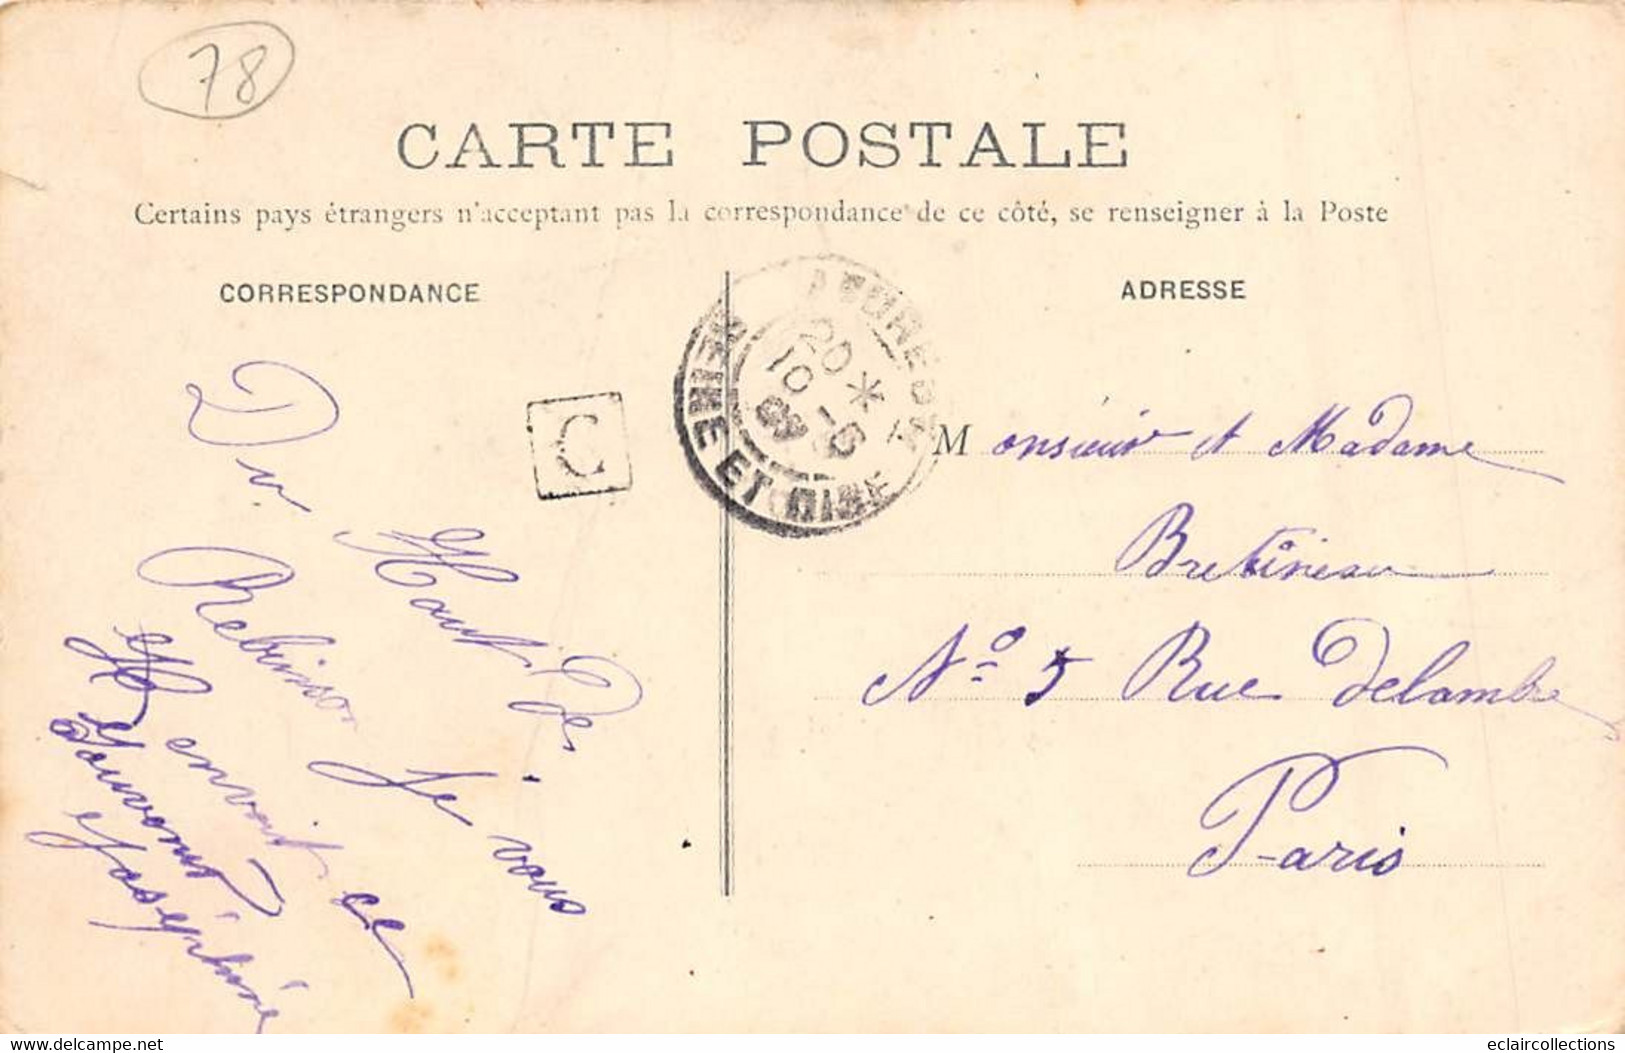 78
CARTE POSTALE
Certains pays étrangers n'acceptant pas la correspondance de ce côté, se renseigner à la Poste
CORRESPONDANCE
ADRESSE
Du Haut De
Robinson Je vous
envoit ce
Souvenir
Joséphine
C
SEINE ET OISE
20 *
10 -5
Monsieur et Madame
Bretineau
No 5 Rue Delambre
Paris
delcampe.net
eclaircollections